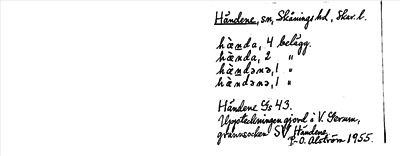 Håndene, sn, Skånings hd, Skar. l.
hànda, 4 belägg.
hànda, 2 "
hàndənə, 1 "
hàndənə, 1 "
Håndene Gs 43.
Uppteckningen gjord i V. Gerum,
grannsocken SV Håndene.
P-O. Alström 1955.